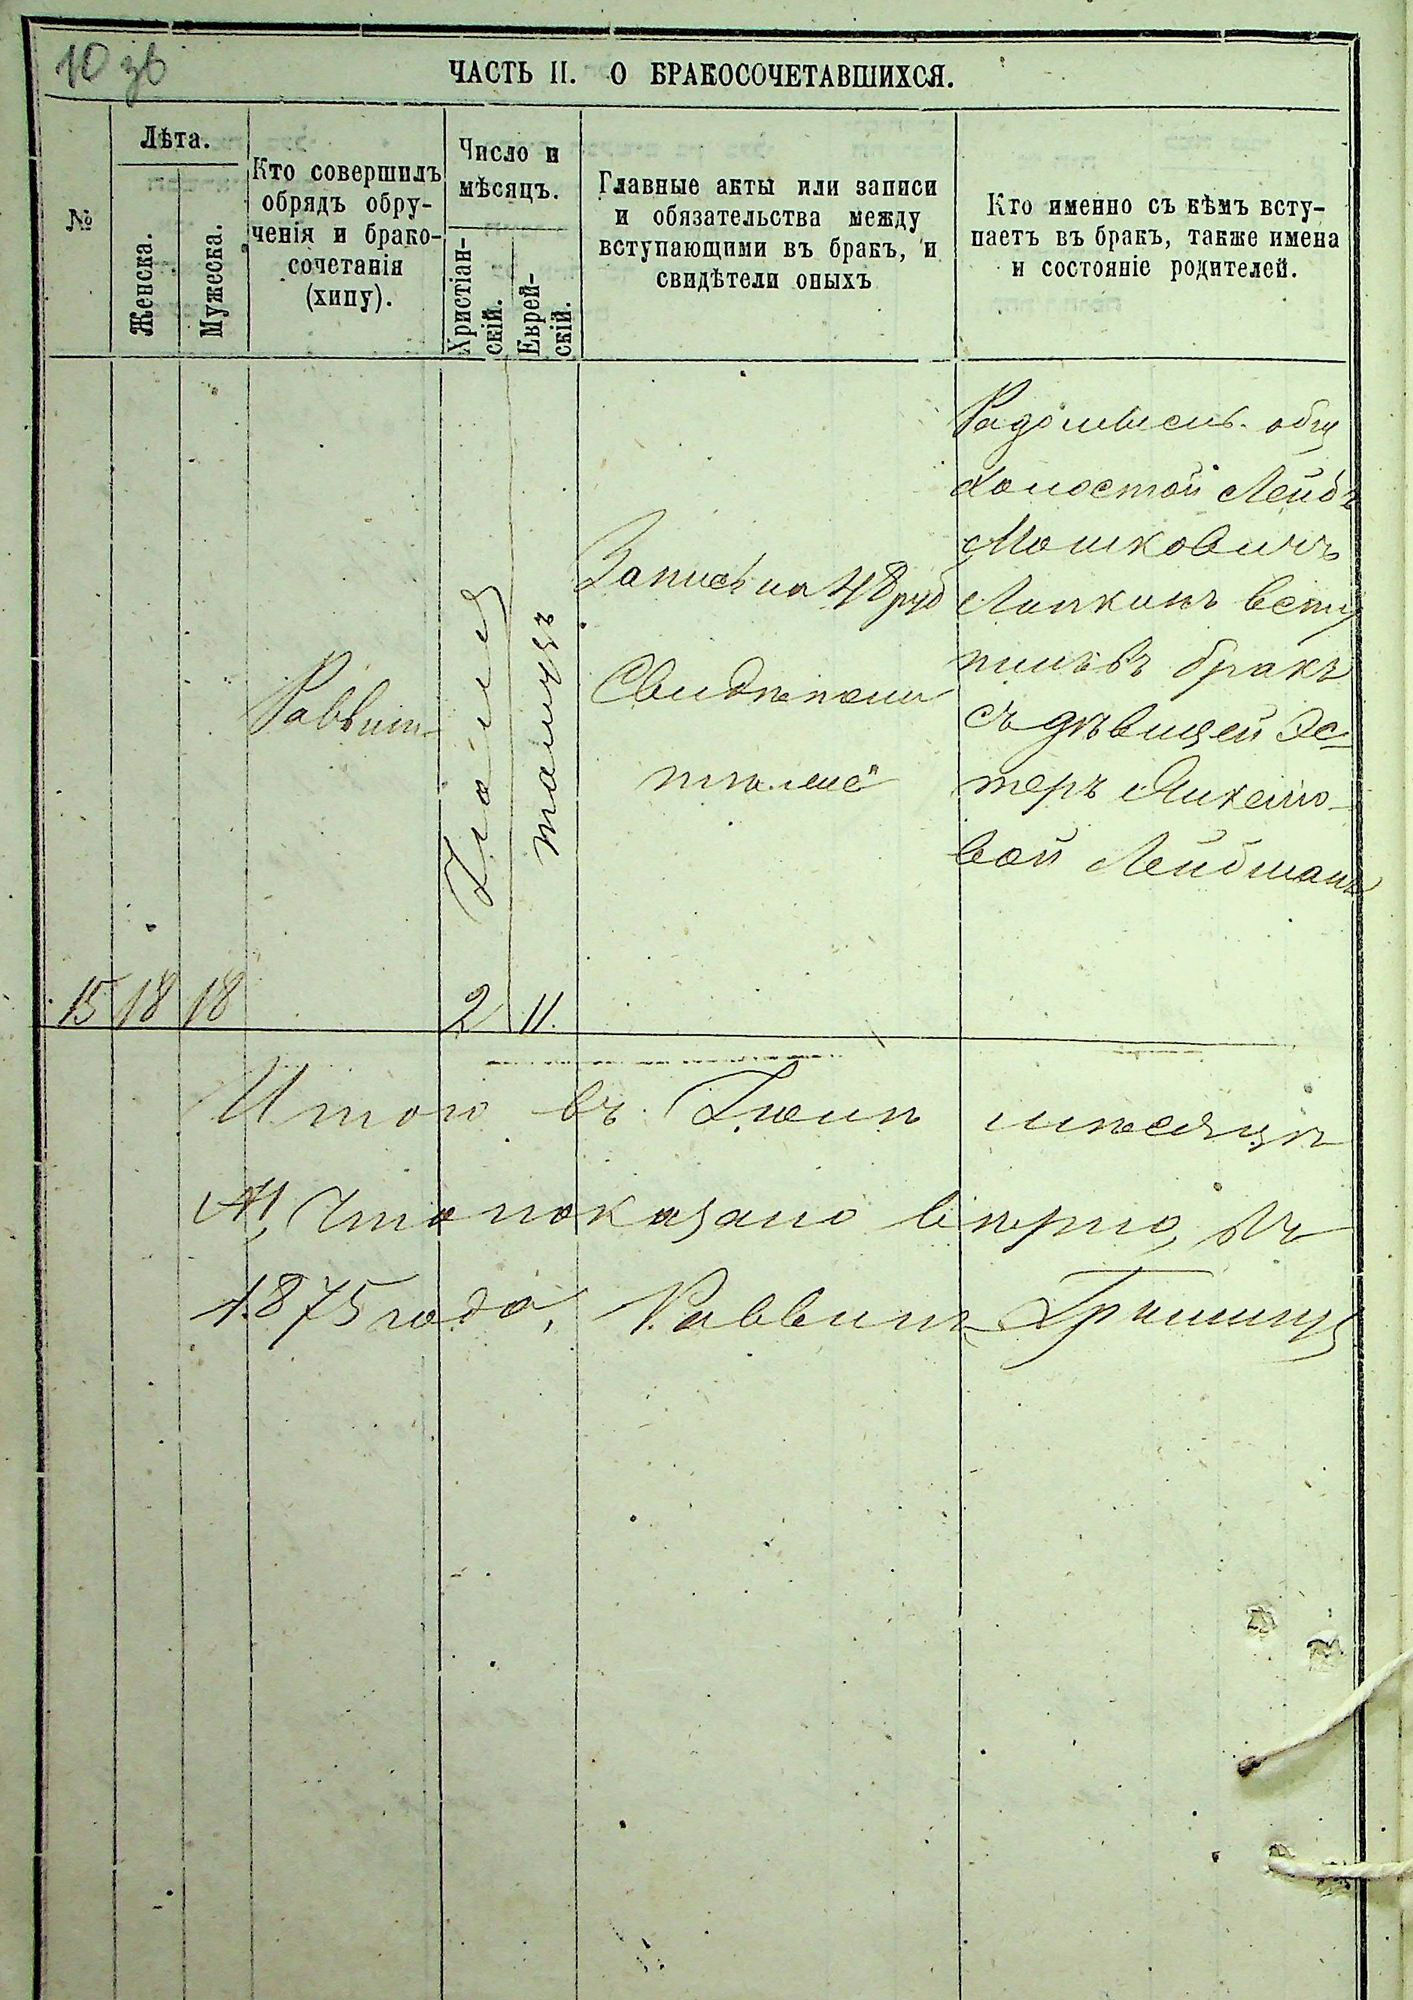 10 зв
ЧАСТЬ II. О БРАКОСОЧЕТАВШИХСЯ.
№
Лѣта.
Женска.
Мужеска.
Кто совершилъ
обрядъ обру-
ченія и брако-
сочетанія
(хипу).
Число и
мѣсяцъ.
Христіан-
скій.
Еврей-
скій.
Главные акты или записи
и обязательства между
вступающими въ бракъ, и
свидѣтели оныхъ
Кто именно съ кѣмъ всту-
паетъ въ бракъ, также имена
и состояніе родителей.
15
18
18
Раввин
2
Іюля
11.
тамузъ
Запись на 48 руб
Свидѣтели
тѣ.же
Радомысл. общ
холостой Лейбъ
Мошковичъ
всту
пилъ въ бракъ
съ дѣвицей Эс-
теръ Янкело-
вой Лейбманъ
Итого въ мѣсяцѣ
Что показано вѣрно,
1875 года, Раввинъ